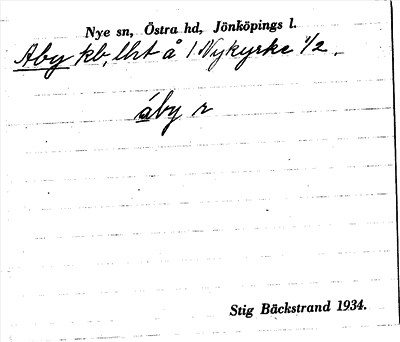 Nye sn, Östra hd, Jönköpings l.
Åby kb, lht å 1 Nykyrke 1/2.
åby r
Stig Bäckstrand 1934.